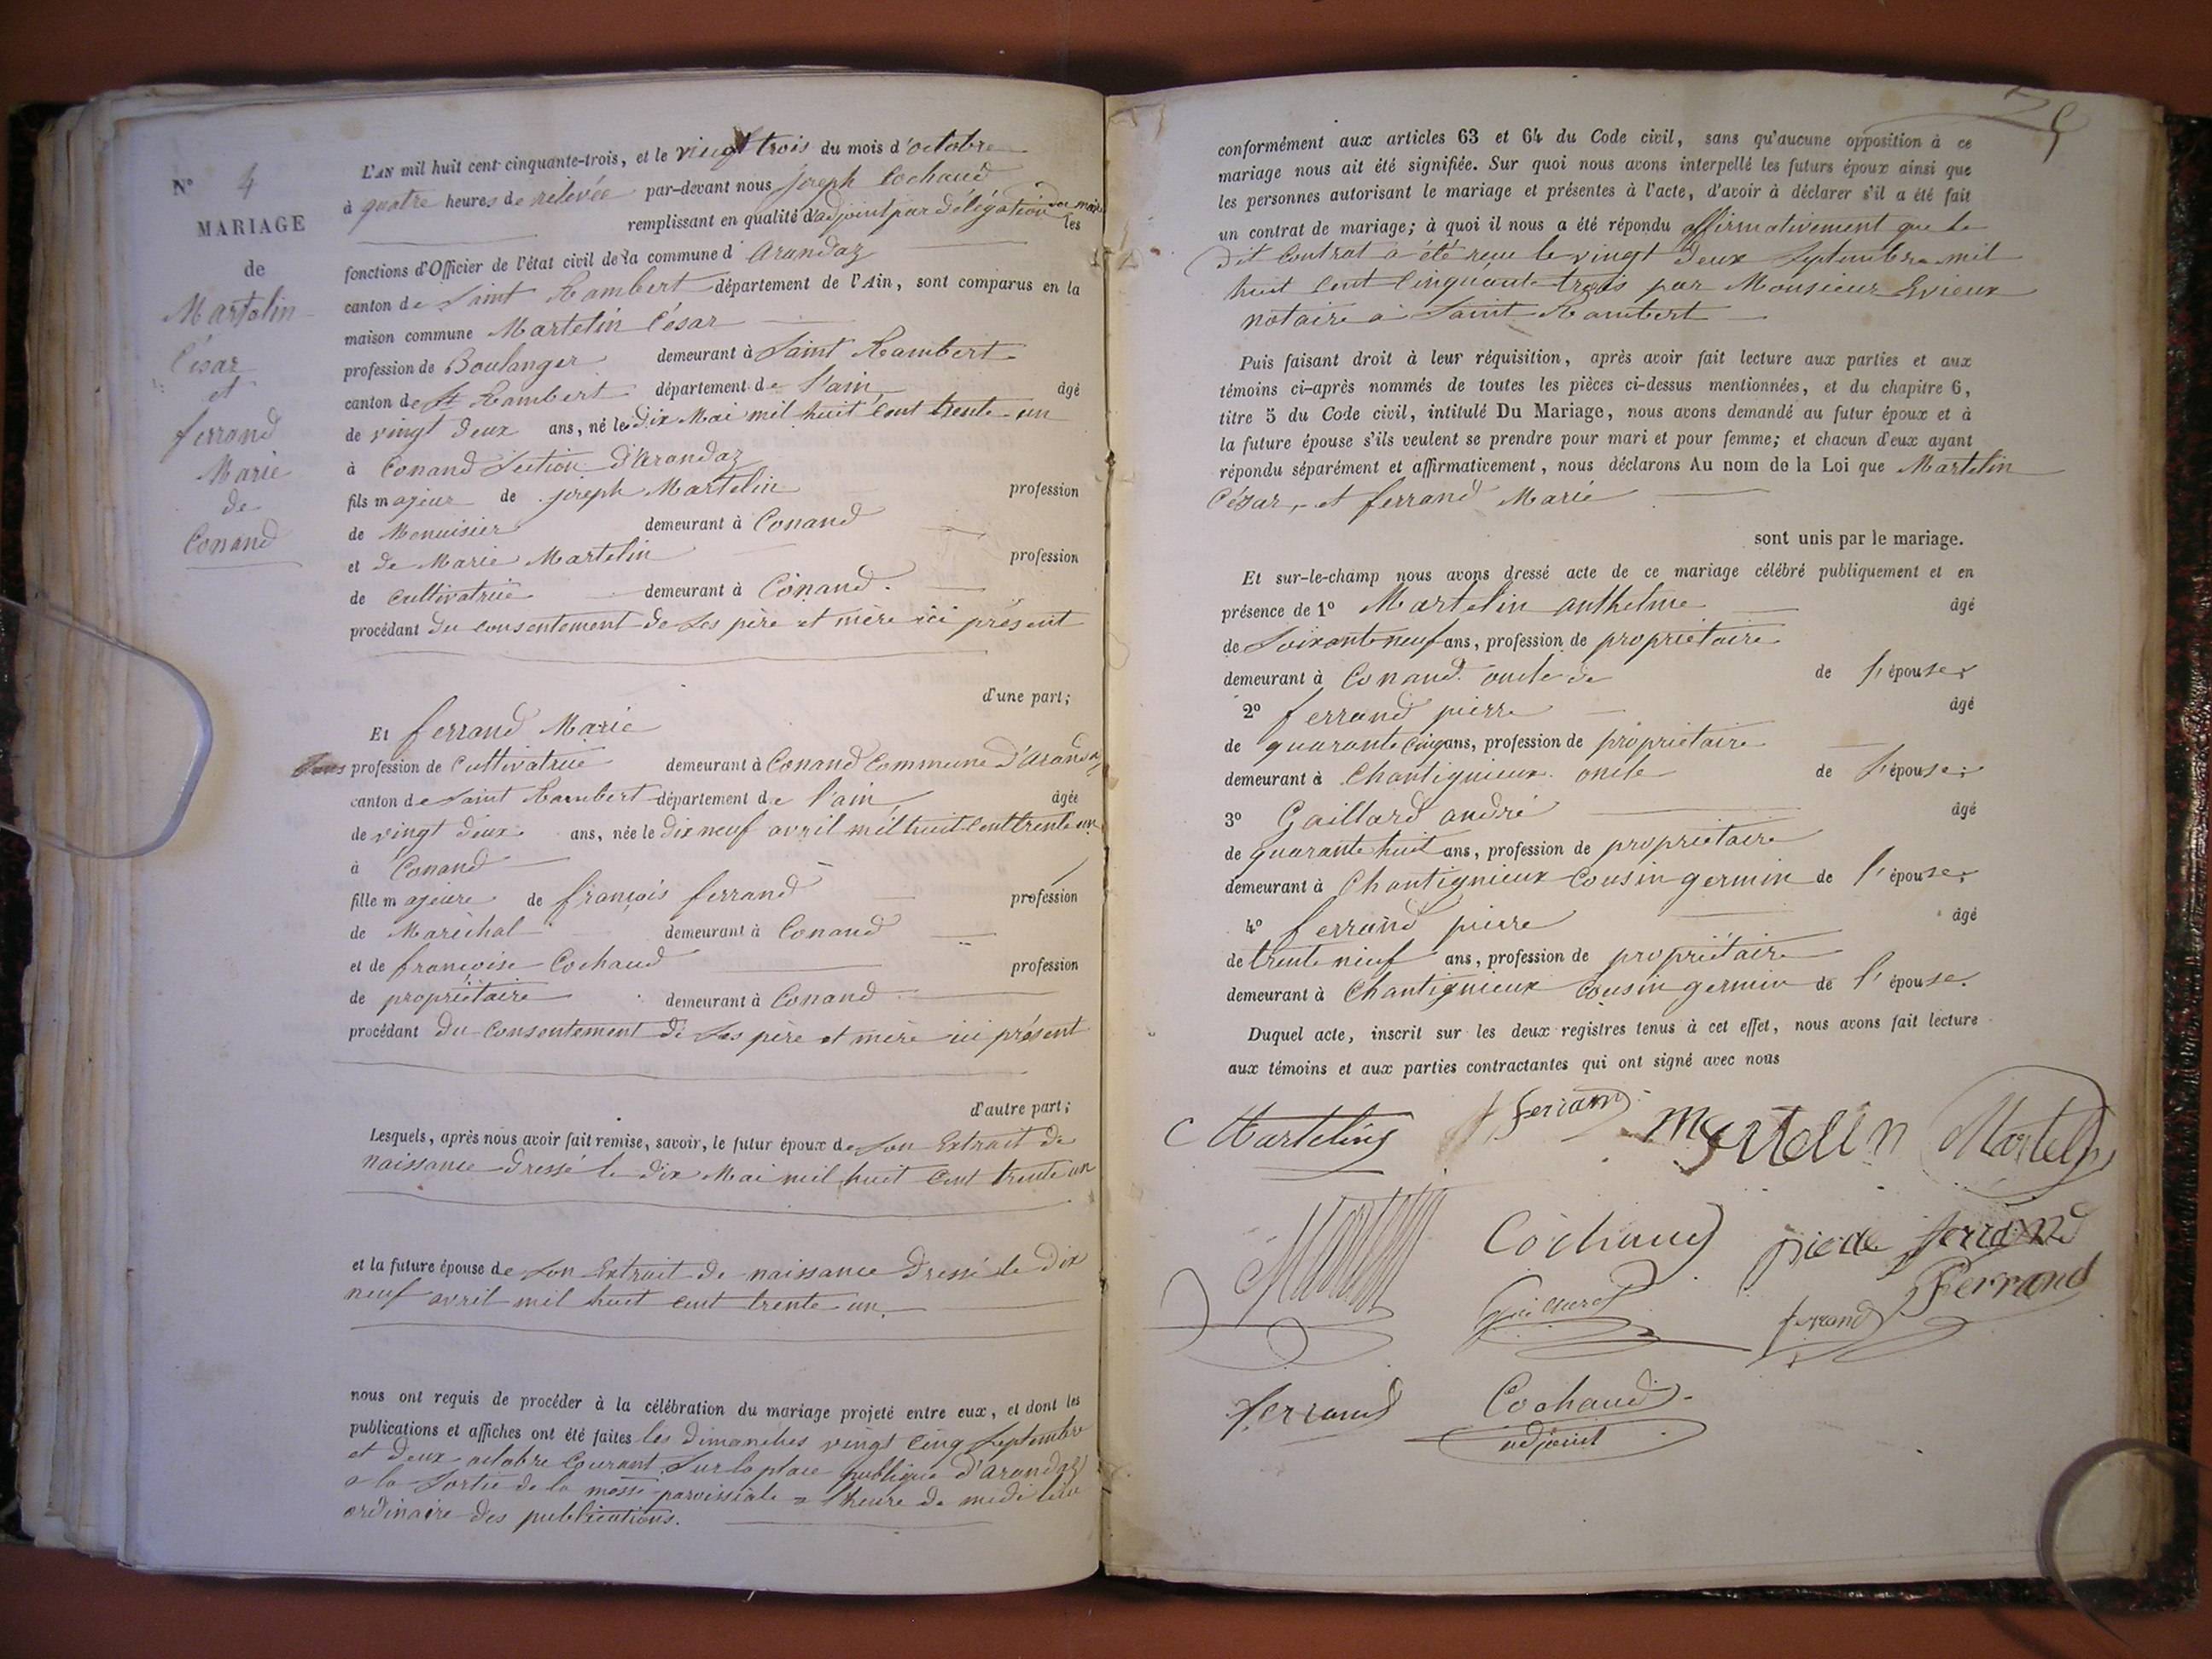 N° 4
MARIAGE
de
Martelin
César
et
ferrand
Marie
de
Conand
L'AN mil huit cent cinquante-trois, et le vingt trois du mois d'octobre
à quatre heures de relevée par-devant nous joseph Cochaud
remplissant en qualité d'adjoint par délégation du maire les
fonctions d'Officier de l'état civil de la commune d'arandaz
canton de Saint Rambert département de l'Ain, sont comparus en la
maison commune Martelin César
profession de Boulanger demeurant à Saint Rambert
canton de St Rambert département de l'ain âgé
de vingt deux ans, né le dix Mai mil huit cent trente-un
à Conand Section d'arandaz
fils majeur de joseph Martelin profession
de Menuisier demeurant à Conand
et de Marie Martelin profession
de cultivatrice demeurant à Conand
procédant du consentement de ses père et mère ici présent
d'une part;
Et ferrand Marie
profession de Cultivatrice demeurant à Conand Commune d'arandaz
canton de Saint Rambert département de l'ain âgée
de vingt deux ans, née le dix neuf avril mil huit cent trente un
à Conand
fille majeure de françois ferrand profession
de Maréchal demeurant à Conand
et de françoise Cochaud profession
de propriétaire demeurant à Conand
procédant du consentement de ses père et mère ici présent
d'autre part;
Lesquels, après nous avoir fait remise, savoir, le futur époux de son Extrait de
naissance dressé le dix Mai mil huit cent trente un
et la future épouse de son Extrait de naissance dressé le dix
neuf avril mil huit cent trente un.
nous ont requis de procéder à la célébration du mariage projeté entre eux, et dont les
publications et affiches ont été faites les dimanches vingt cinq Septembre
et deux octobre Courant, Sur la place publique d'arandaz
a la Sortie de la messe paroissiale a l'heure de midi lieu
ordinaire des publications.
25
conformément aux articles 63 et 64 du Code civil, sans qu'aucune opposition à ce
mariage nous ait été signifiée. Sur quoi nous avons interpellé les futurs époux ainsi que
les personnes autorisant le mariage et présentes à l'acte, d'avoir à déclarer s'il a été fait
un contrat de mariage; à quoi il nous a été répondu affirmativement que le
dit Contrat a été reçu le vingt deux Septembre mil
huit cent Cinquante trois par Monsieur Evieux
notaire a Saint Rambert
Puis faisant droit à leur réquisition, après avoir fait lecture aux parties et aux
témoins ci-après nommés de toutes les pièces ci-dessus mentionnées, et du chapitre 6,
titre 5 du Code civil, intitulé Du Mariage, nous avons demandé au futur époux et à
la future épouse s'ils veulent se prendre pour mari et pour femme; et chacun d'eux ayant
répondu séparément et affirmativement, nous déclarons Au nom de la Loi que Martelin
César, et ferrand Marie
sont unis par le mariage.
Et sur-le-champ nous avons dressé acte de ce mariage célébré publiquement et en
présence de 1° Martelin anthelme âgé
de Soixante neuf ans, profession de propriétaire
demeurant à Conand oncle de de l'épouse,
2° ferrand pierre âgé
de quarante cinq ans, profession de propriétaire
demeurant à Chantignieux oncle de l'épouse;
3° Gaillard andré âgé
de quarante huit ans, profession de propriétaire
demeurant à Chantignieux Cousin germin de l'épouse,
4° ferrand pierre âgé
de trente neuf ans, profession de propriétaire
demeurant à Chantignieux Cousin germin de l'épouse.
Duquel acte, inscrit sur les deux registres tenus à cet effet, nous avons fait lecture
aux témoins et aux parties contractantes qui ont signé avec nous
C Martelin f feriand Martelin Martelin
Martelin Cochaud ferrand
Gaillard ferrand Ferrand
ferrand Cochaud
adjoint